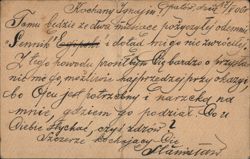 Kochany Ignasiu Opatów, dnia 2/5 00
Temu będzie ze dwa miesiące pożyczyłeś odemnie
Sennik i dotąd mi go nie zwróciłeś.
Z tego powodu prosiłbym Cię bardzo o przysła-
nie mi go możliwie najprędzej przy okazyi,
bo Ojcu jest potrzebny i narzeka na
mnie, gdziem go podział. Co u
Ciebie słychać, czyś zdrów?
Szczerze kochający Cię
Stanisław